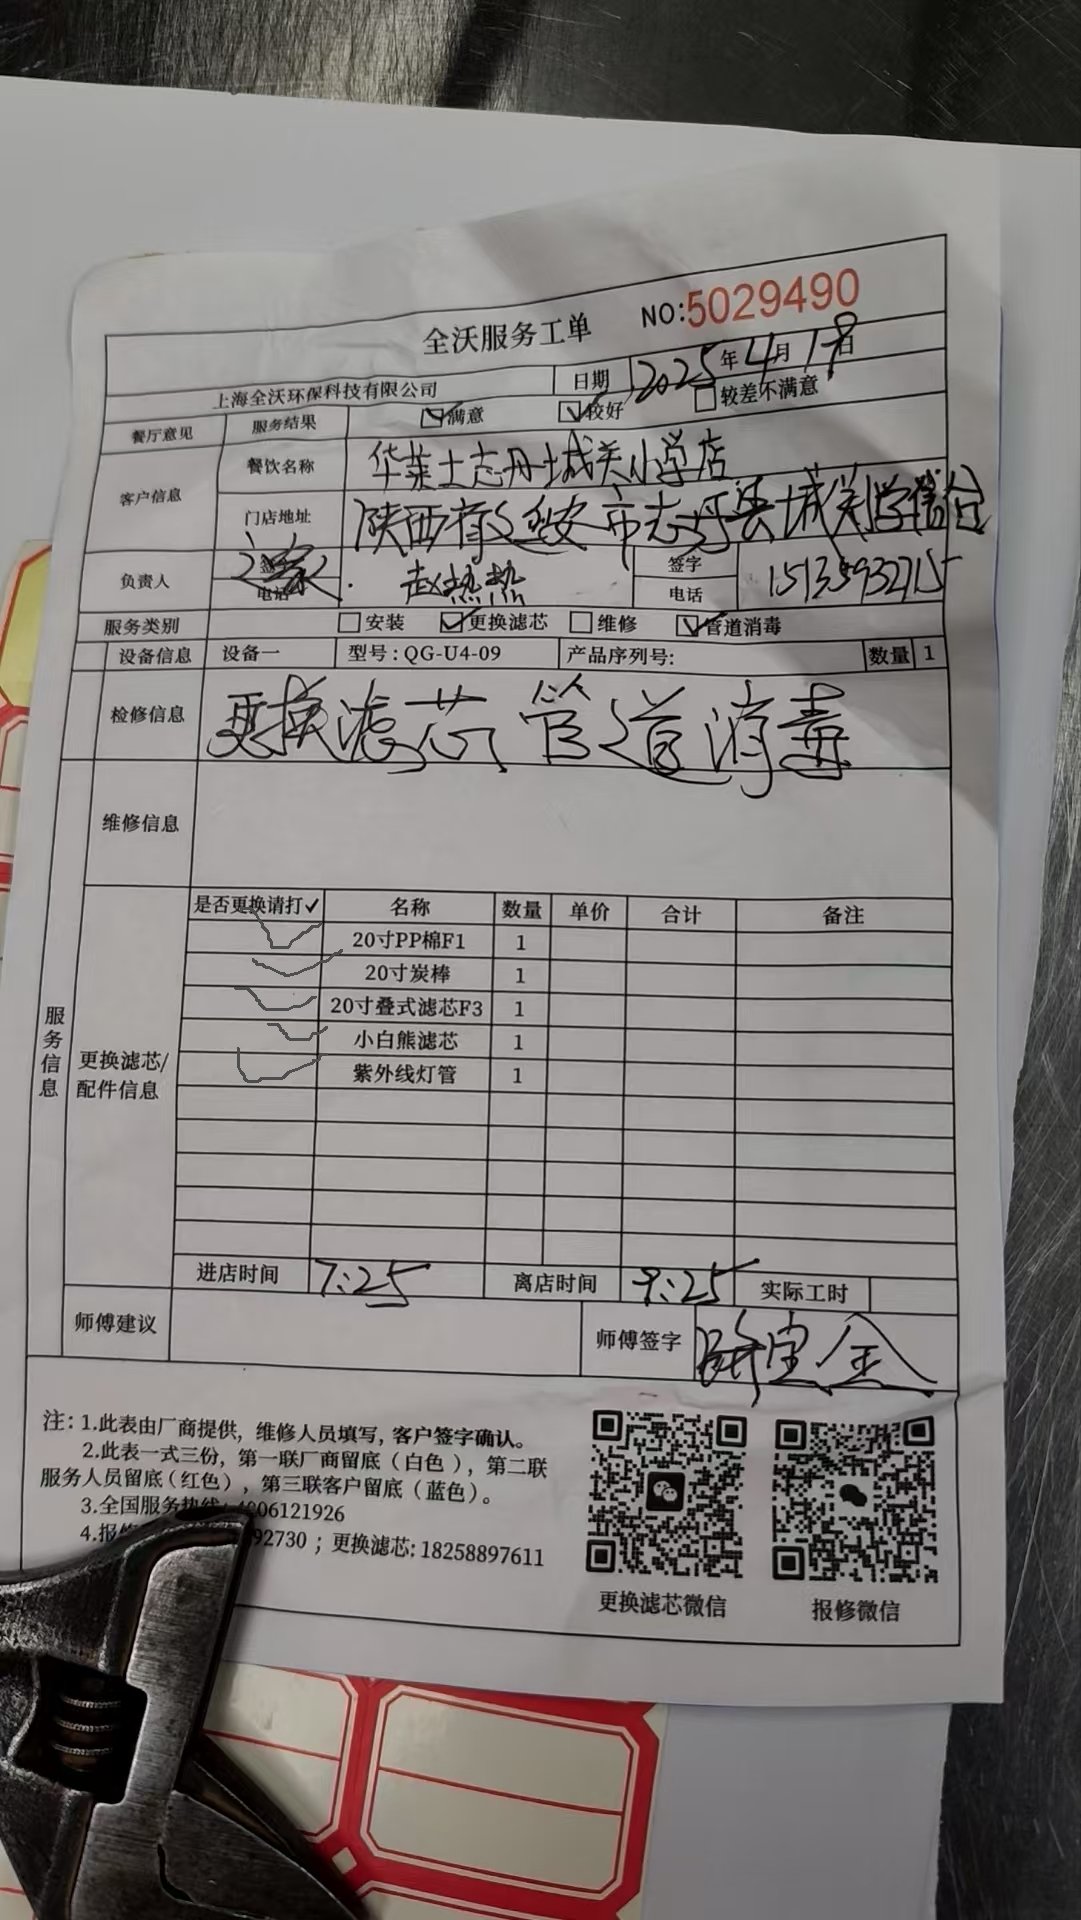 全沃服务工单 NO:5029490
上海全沃环保科技有限公司 日期 2025年4月18日
餐厅意见 服务结果 满意 较好 较差不满意
客户信息 餐饮名称 华莱士志丹城关小学店
门店地址 陕西省延安市志丹县城关小学
负责人 签字 赵热热 签字
电话 电话
服务类别 安装 更换滤芯 维修 管道消毒
设备信息 设备一 型号:QG-U4-09 产品序列号: 数量 1
检修信息 更换滤芯管道消毒
维修信息
服务信息
更换滤芯/配件信息
是否更换请打✓ 名称 数量 单价 合计 备注
20寸PP棉F1 1
20寸炭棒 1
20寸叠式滤芯F3 1
小白熊滤芯 1
紫外线灯管 1
进店时间 7:25 离店时间 9:25 实际工时
师傅建议 师傅签字
注: 1.此表由厂商提供，维修人员填写，客户签字确认。
2.此表一式三份，第一联厂商留底（白色），第二联
服务人员留底（红色），第三联客户留底（蓝色）。
3.全国服务热线: 4006121926
4.报修 92730；更换滤芯: 18258897611
更换滤芯微信 报修微信